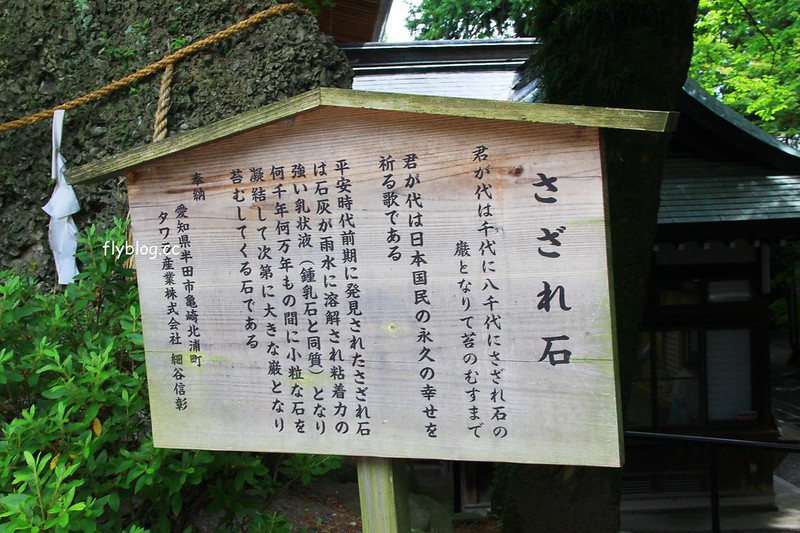 さざれ石
君が代は千代に八千代にさざれ石の
巌となりて苔のむすまで
君が代は日本国民の永久の幸せを
祈る歌である
平安時代前期に発見されたさざれ石
は石灰が雨水に溶解され粘着力の
強い乳状液（鍾乳石と同質）となり
何千年何万年もの間に小粒な石を
凝結して次第に大きな巌となり
苔むしてくる石である
奉納
愛知県半田市亀崎北浦町
タワ 産業株式会社 細谷信彰
flyblog.cc